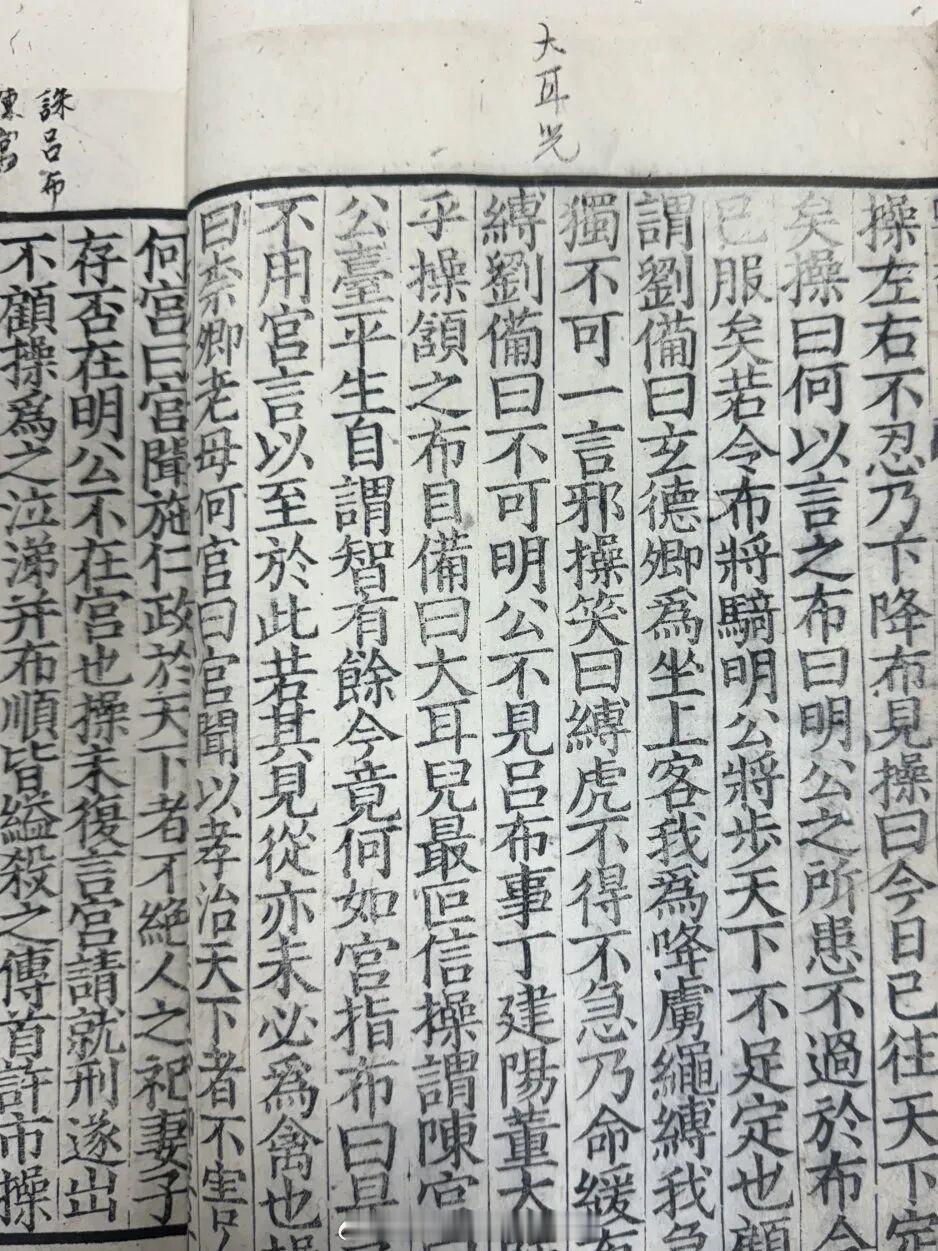 大耳兒
操左右不忍乃下降布見操曰今日已往天下定
矣操曰何以言之布曰明公之所患不過於布今
已服矣若令布將騎明公將步天下不足定也顧
謂劉備曰玄德卿爲坐上客我爲降虜繩縛我急
獨不可一言邪操笑曰縛虎不得不急乃命緩布
縛劉備曰不可明公不見呂布事丁建陽董太
乎操頷之布目備曰大耳兒最叵信操謂陳宮
公臺平生自謂智有餘今竟何如宮指布曰是
不用宮言以至於此若其見從亦未必爲禽也操
曰柰卿老母何宮曰宮聞以孝治天下者不害
誅呂布
陳宮
何宮曰宮聞施仁政於天下者不絶人之祀妻子
存否在明公不在宮也操未復言宮請就刑遂出
不顧操爲之泣涕并布順皆縊殺之傳首許市操